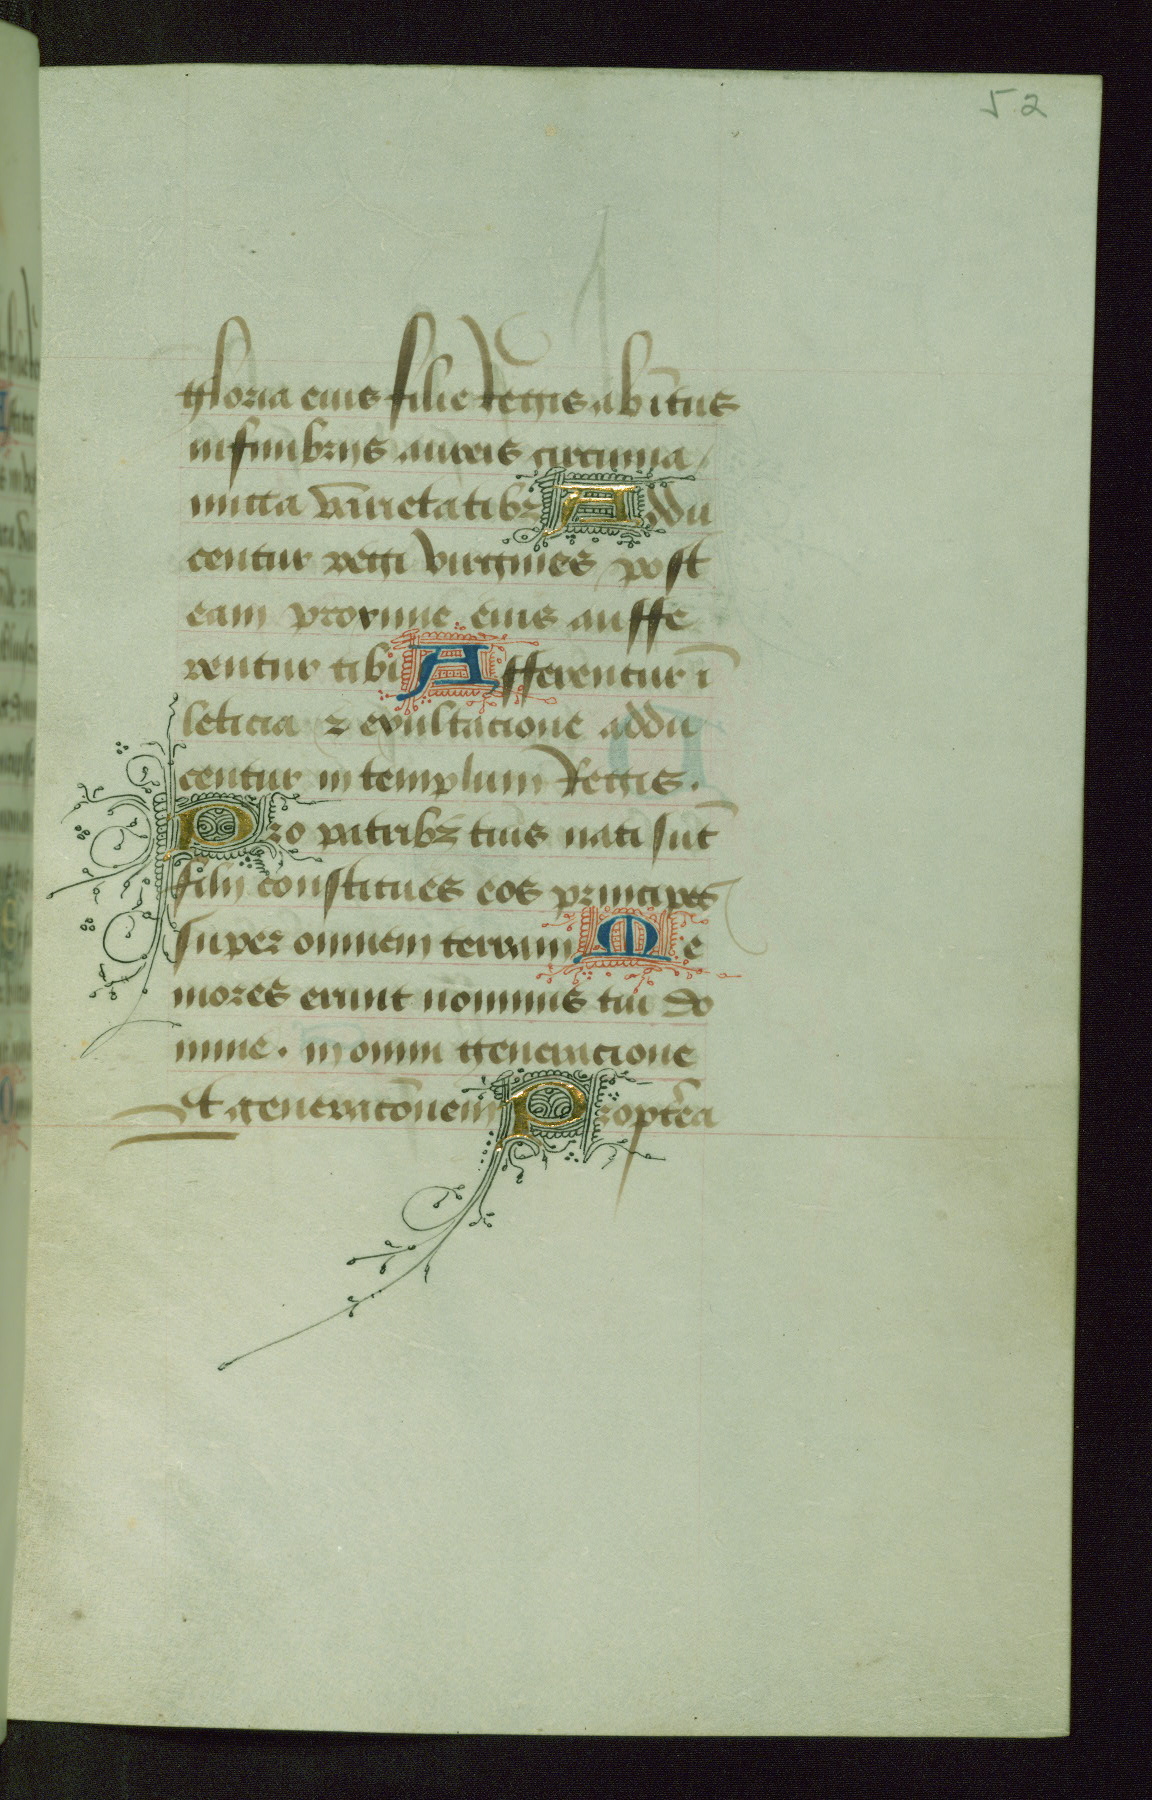 52
gloria eius filie Regis ab ītus
in fimbrijs aureis circuma
micta varietatibꝫ Addu
centur regi virgines post
eam proxime eius auffe
rentur tibi Afferentur ī
leticia ⁊ exultacione addu
centur in templum Regis.
Pro patribꝫ tuis nati sūt
filij constitues eos principes
super omnem terram Me
mores erunt nominis tui do
mine. in omni generacione
et generacōnem Propt̄ea